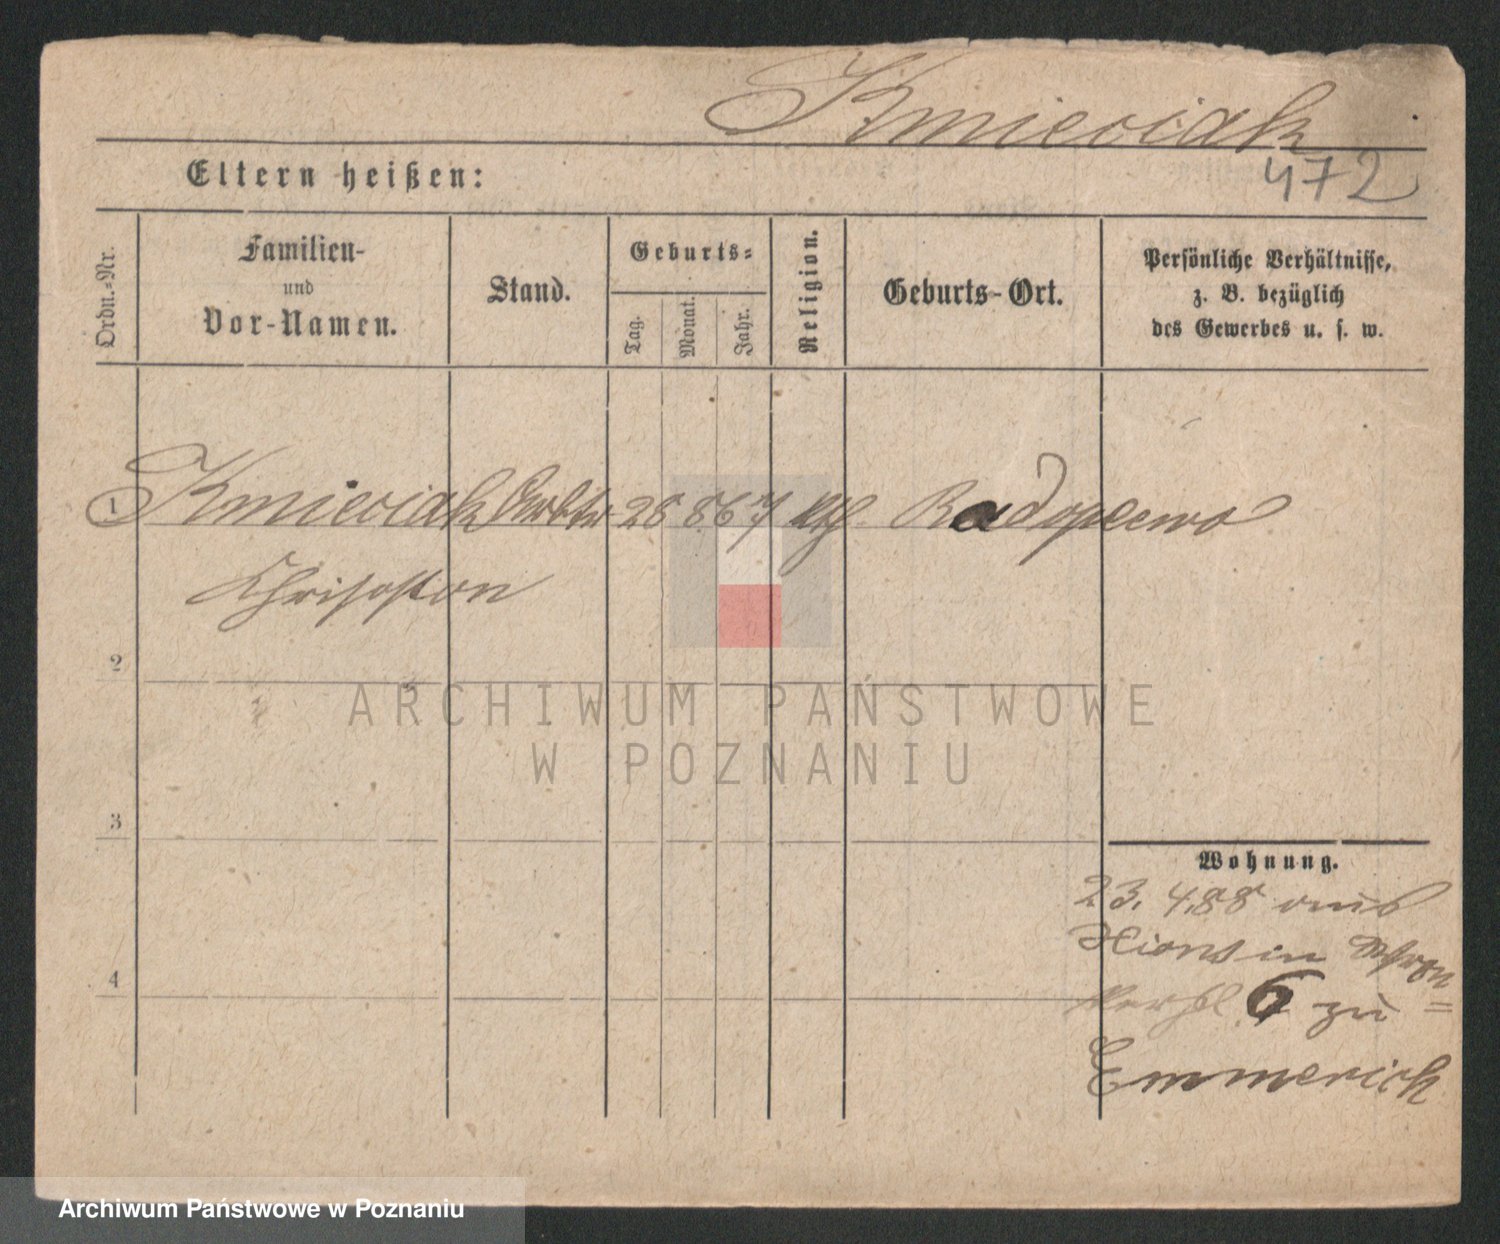 Kmieciak
472
Eltern heißen:
Ordn.-Nr.
Familien-
und
Vor-Namen.
Stand.
Geburts-
Tag.
Monat.
Jahr.
Religion.
Geburts-Ort.
Persönliche Verhältnisse,
z. B. bezüglich
des Gewerbes u. s. w.
1 Kmieciak Arbtr 28 8 67 kth. Radopiewo
Chrisoston
2
3
4
ARCHIWUM PAŃSTWOWE
W POZNANIU
Wohnung.
23. 4.88 aus
Xions in
6 zu
Emmerich
Archiwum Państwowe w Poznaniu